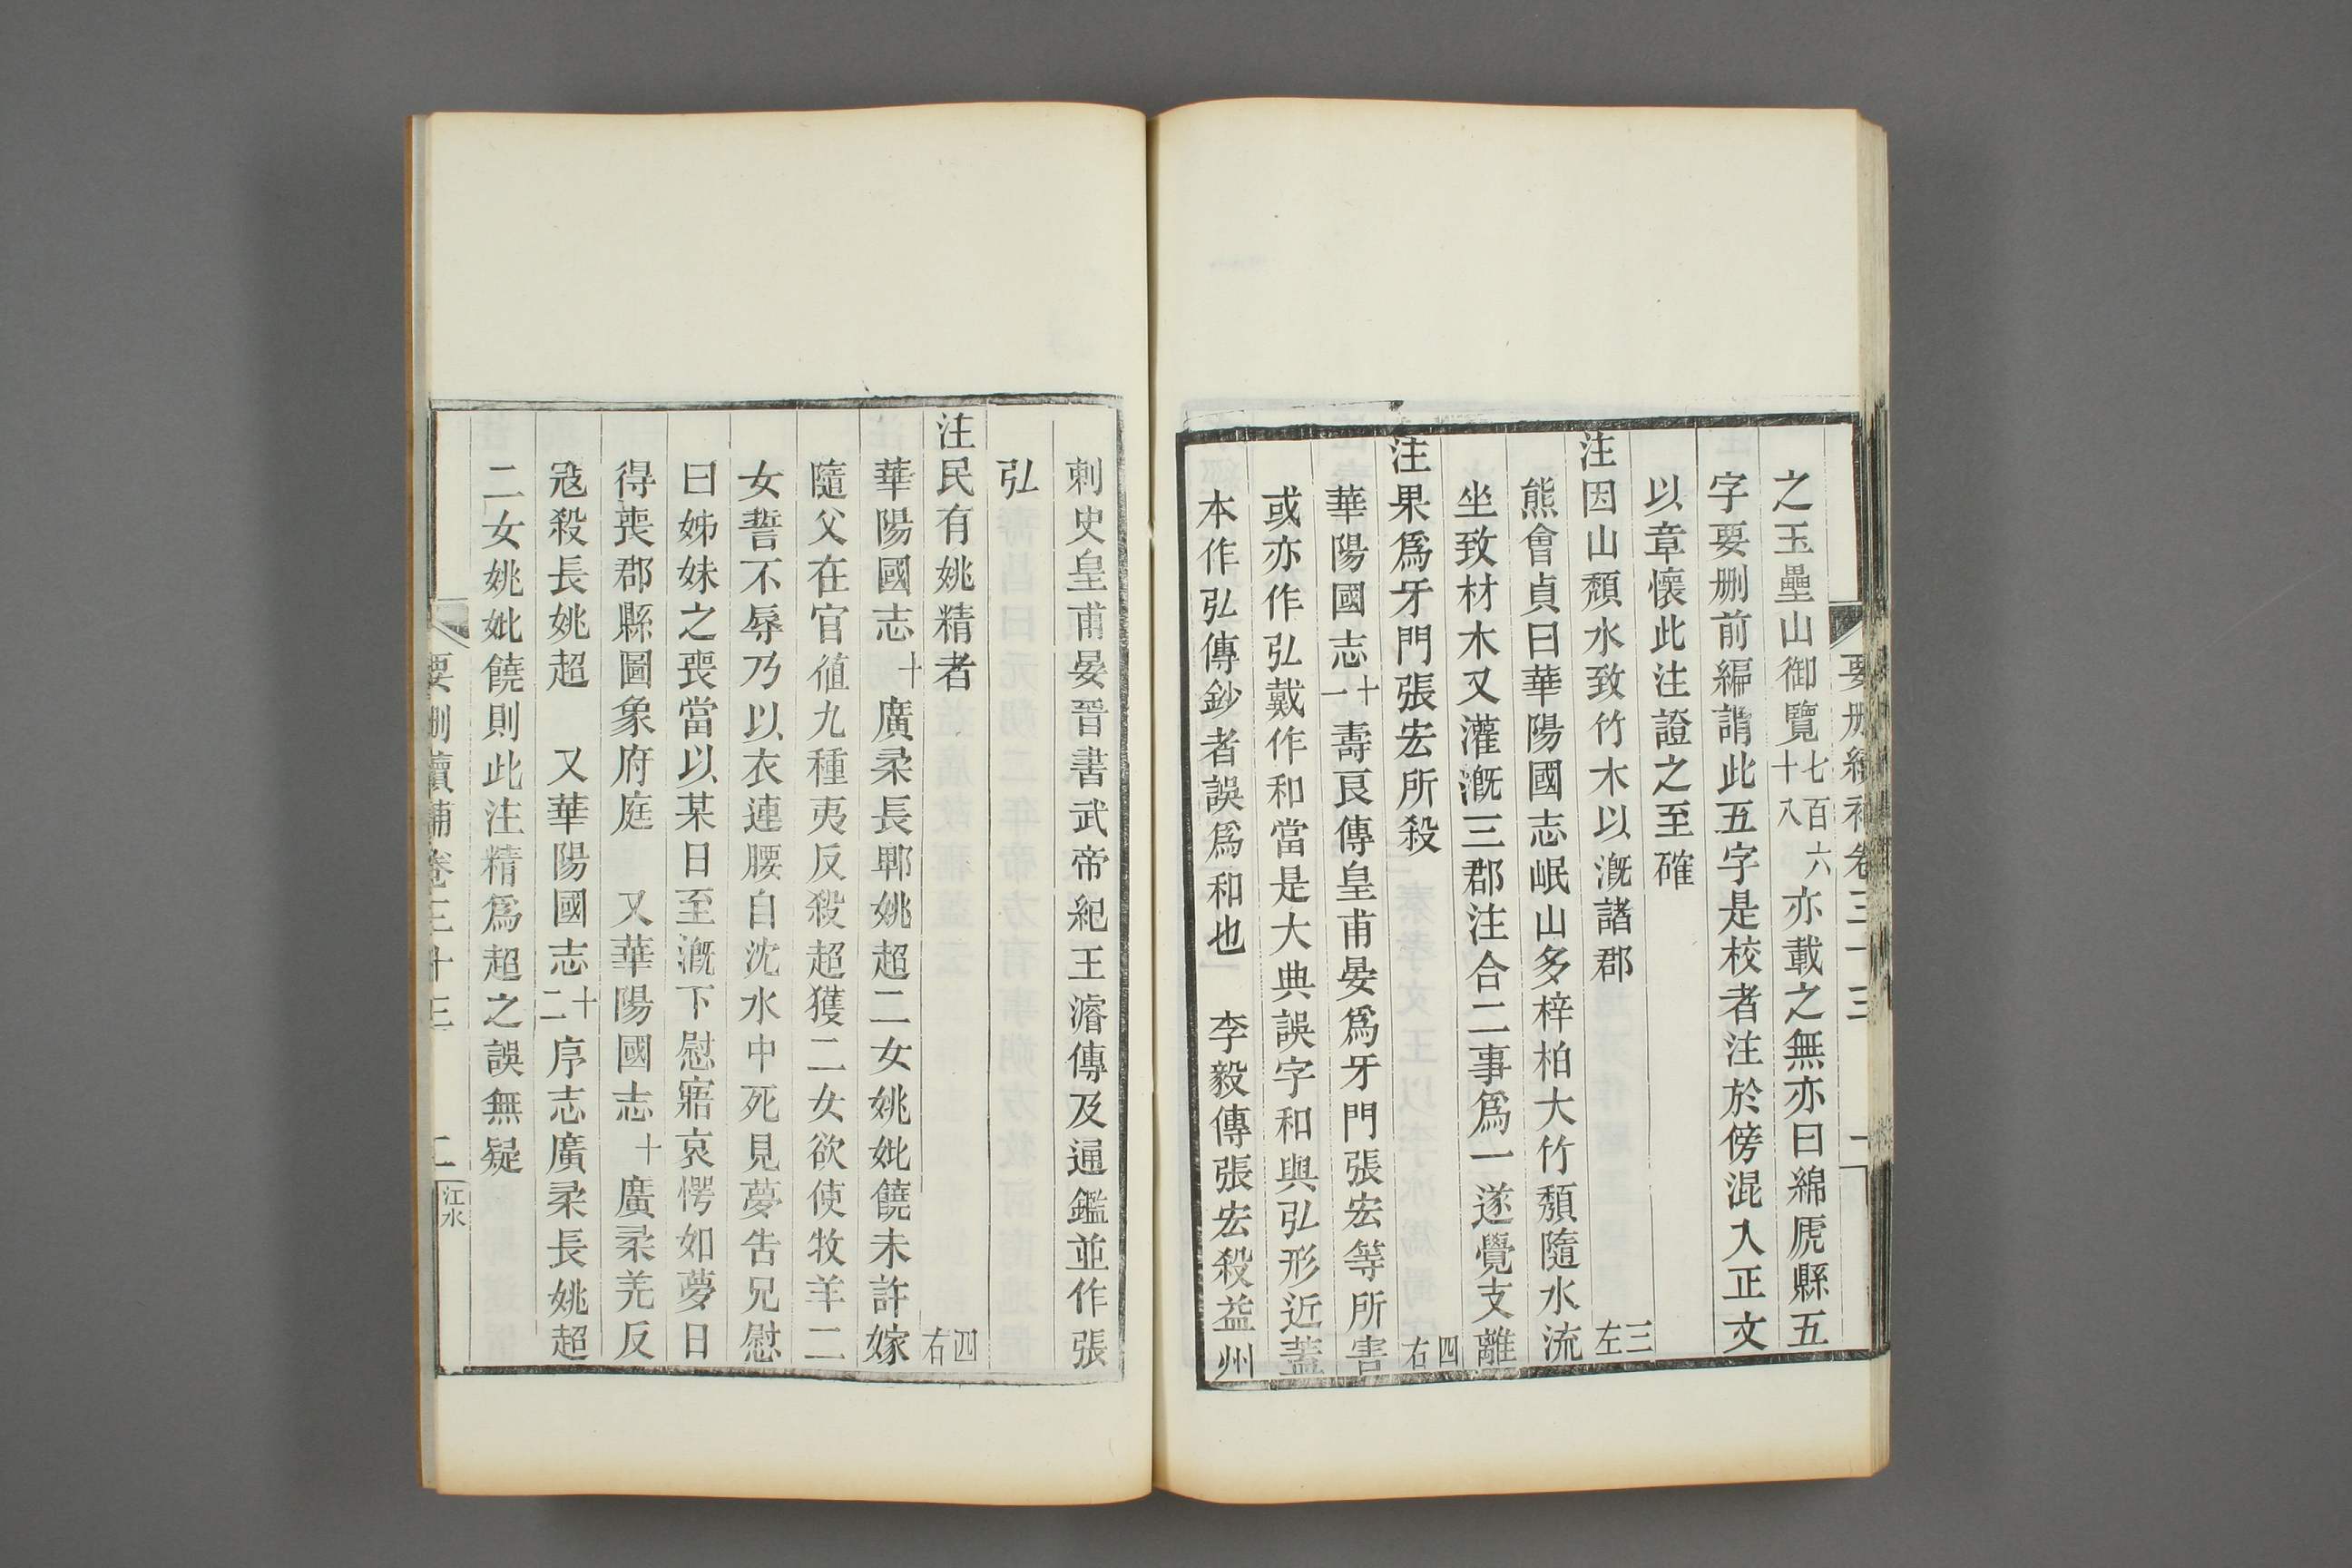 要刪續補卷三十三 一
之玉壘山御覽七百六十八亦載之無亦曰綿虒縣五
字要刪前編謂此五字是校者注於傍混入正文
以章懷此注證之至確
注因山頹水致竹木以漑諸郡 三左
熊會貞曰華陽國志岷山多梓柏大竹頹隨水流
坐致材木又灌漑三郡注合二事爲一遂覺支離
注果爲牙門張宏所殺 四右
華陽國志十一壽良傳皇甫晏爲牙門張宏等所害
或亦作弘戴作和當是大典誤字和與弘形近蓋
本作弘傳鈔者誤爲和也 李毅傳張宏殺益州
刺史皇甫晏晉書武帝紀王濬傳及通鑑並作張
弘
注民有姚精者 四右
華陽國志十廣柔長郫姚超二女姚妣饒未許嫁
隨父在官値九種夷反殺超獲二女欲使牧羊二
女誓不辱乃以衣連腰自沈水中死見夢告兄慰
曰姊妹之喪當以某日至漑下慰寤哀愕如夢日
得喪郡縣圖象府庭 又華陽國志十廣柔羌反
寇殺長姚超 又華陽國志十二序志廣柔長姚超
二女姚妣饒則此注精爲超之誤無疑
要刪續補卷三十三 二 江水